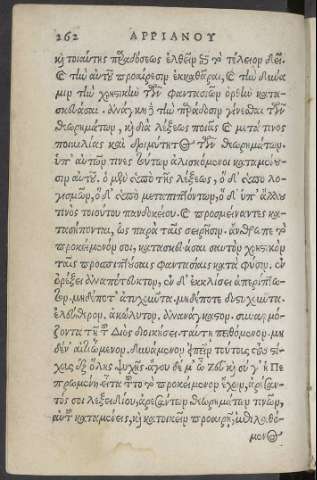 262 ΑΡΡΙΑΝΟΥ
καὶ τοιαύτης παραδόσεως ἐλθεῖν ἐπὶ τὸ τέλειον δεῖ.
καὶ τὴν αὐτοῦ προαίρεσιν ἐκκαθᾶραι, καὶ τὴν δύνα
μιν τὴν χρηστικὴν τῶν φαντασιῶν ὀρθὴν κατα-
σκευάσαι. ἀνάγκη δὲ τὴν παράδοσιν γίνεσθαι τῶν
θεωρημάτων, καὶ διὰ λέξεως ποιᾶς καὶ μετά τινος
ποικιλίας καὶ δριμύτητος τῶν θεωρημάτων.
ὑπ' αὐτῶν τινες τούτων ἁλισκόμενοι καταμένου-
σιν αὐτοῦ. ὁ μὲν ὑπὸ τῆς λέξεως, ὁ δ' ὑπὸ συλλο-
γισμῶν, ὁ δ' ὑπὸ μεταπιπτόντων, ὁ δ' ὑπ' ἄλλου
τινὸς τοιούτου πανδοκείου. καὶ προσμείναντες κα-
τασήπονται, ὡς παρὰ ταῖς σειρῆσιν. ἄνθρωπε τὸ
προκείμενόν σοι, κατασκευάσαι σαυτὸν χρηστικὸν
ταῖς προσπιπτούσαις φαντασίαις κατὰ φύσιν. ἐν
ὀρέξει ἀναπότευκτον, ἐν δ' ἐκκλίσει ἀπερίπτω-
τον. μηδέποτ' ἀτυχοῦντα. μηδέποτε δυστυχοῦντα.
ἐλεύθερον. ἀκώλυτον. ἀνανάγκαστον. συναρμό-
ζοντα τῇ τοῦ Διὸς διοικήσει. ταύτῃ πειθόμενον. μη
δὲν αἰτιώμενον. δυνάμενον εἰπεῖν τούτοις τοὺς στί-
χους ἐξ ὅλης ψυχῆς. ἄγου δέ μ' ὦ ζεῦ καὶ σύ γ' ἡ Πε
πρωμένη. εἶτα τοῦτο τὸ προκείμενον ἔχων, ἀρέσαν-
τός σοι λεξειδίου, ἀρεσάντων θεωρημάτων τινῶν,
αὐτοῦ καταμένεις, καὶ κατοικεῖν προαιρῇ, ἐπιλαθό-
μενος